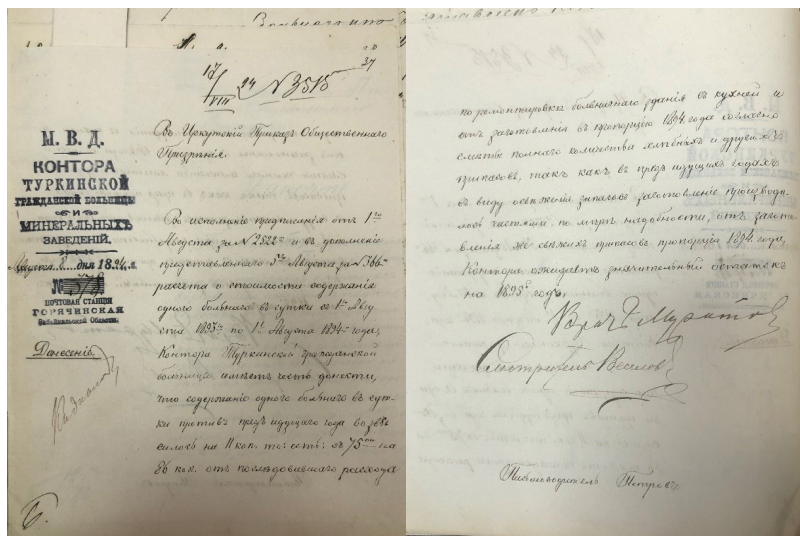 17/VIII 94 № 3515
М. В. Д.
КОНТОРА
ТУРКИНСКОЙ
ГРАЖДАНСКОЙ БОЛЬНИЦЫ
И
МИНЕРАЛЬНЫХЪ
ЗАВЕДЕНІЙ.
Августа 8 дня 1894 г.
№
ПОЧТОВАЯ СТАНЦІЯ
ГОРЯЧИНСКАЯ
Забайкальской Области.
Донесеніе.
Въ Иркутскій Приказъ Общественнаго
Призрѣнія.
Въ исполненіе предписанія отъ 1го
Августа за № 2522 и въ дополненіе
представленнаго 5го Августа за № 366
расчета о стоимости содержанія
одного больнаго въ сутки съ 1го Авгу
ста 1893го по 1е Августа 1894 года,
Контора Туркинской гражданской
больницы имѣетъ честь донести,
что содержаніе одного больнаго въ сут-
ки противъ предъидущаго года возвы
силось на 11 коп. то есть: съ 75ти на
86 коп. отъ послѣдовавшаго расхода
по ремонтировкѣ больничнаго зданія съ кухней и
отъ заготовленія въ пропорцію 1894 года согласно
смѣты полнаго количества хлѣбныхъ и другихъ
припасовъ, такъ какъ въ предъидущихъ годахъ
въ виду освѣженія запасовъ заготовленіе производи-
лось частями по мѣрѣ надобности, отъ загото
вленія же свѣжихъ припасовъ пропорціи 1894 года,
Контора ожидаетъ значительный остатокъ
на 1895й годъ.
Врачъ
Смотритель
Письмоводитель Петровъ